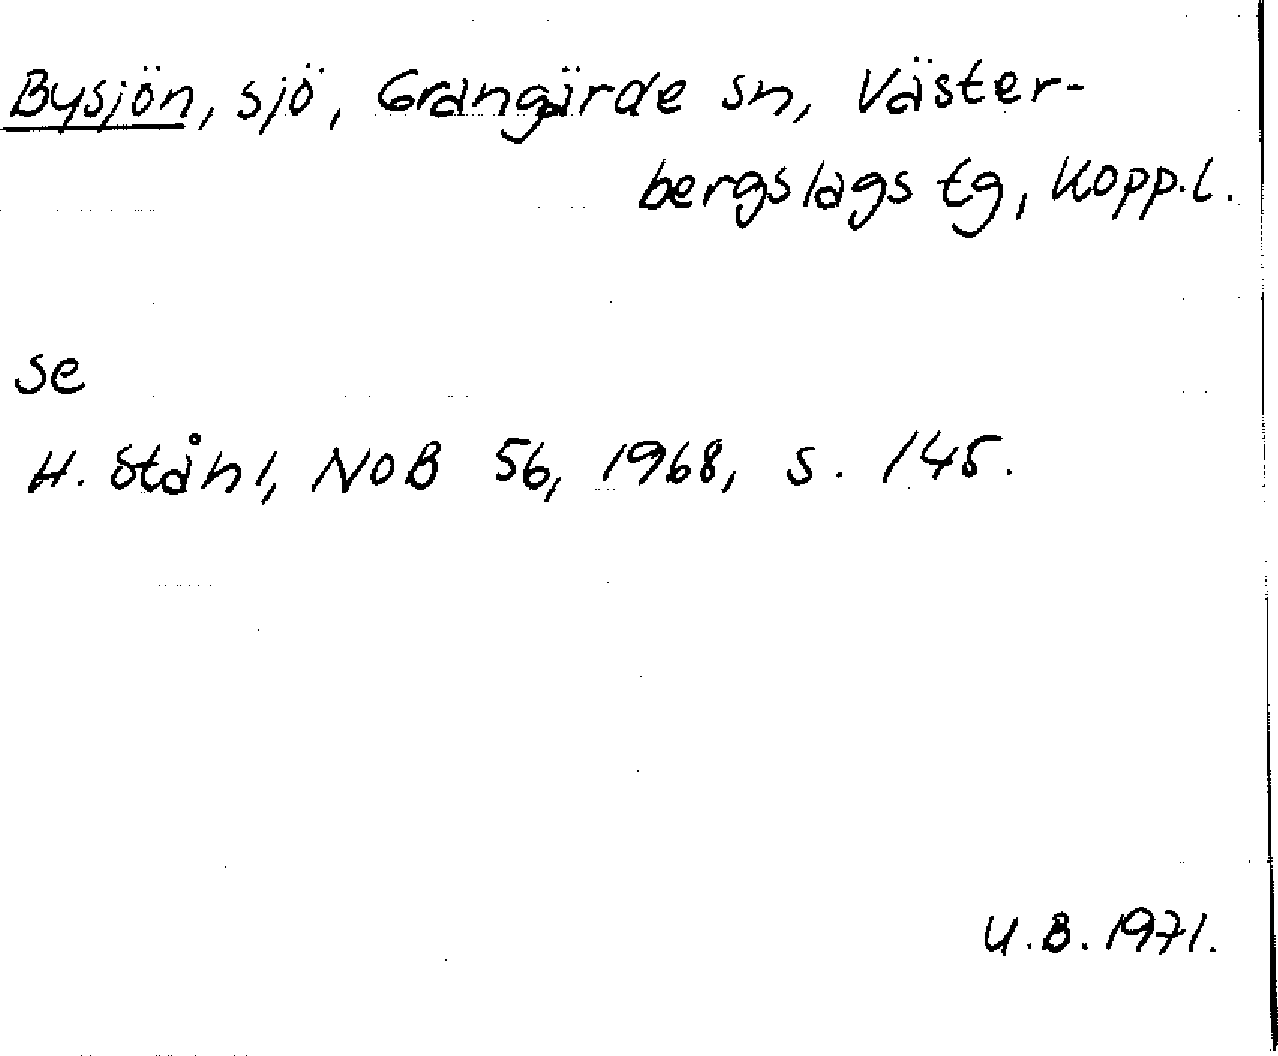 Bysjön, sjö, Grangärde sn, Väster-
bergslags tg, Kopp.l.
se
H. Ståhl, NoB 56, 1968, s. 145.
U.B. 1971.